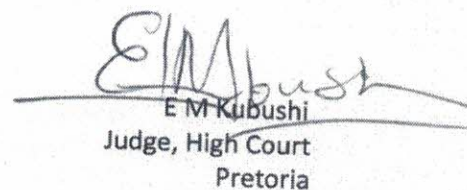 E M Kubushi
Judge, High Court
Pretoria